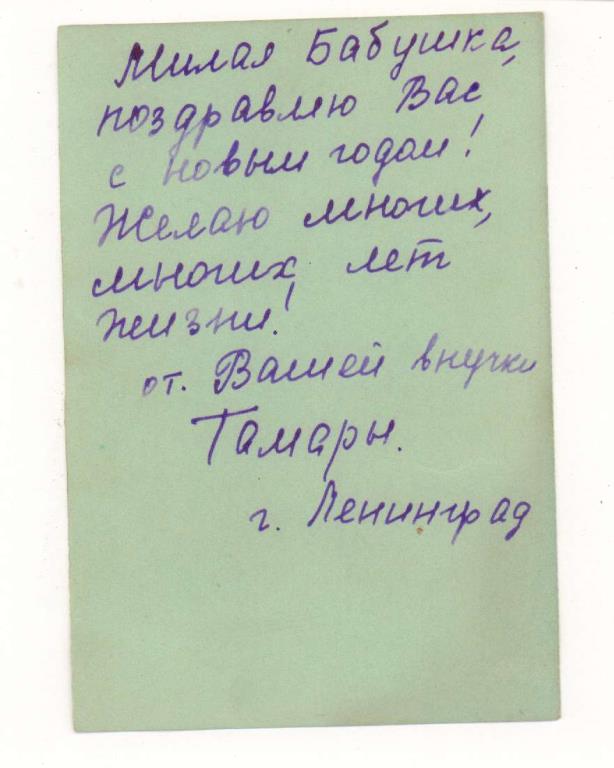 Милая Бабушка,
поздравлю Вас
с новым годом!
Желаю многих,
многих лет
жизни!
от. Вашей внучки
Тамары.
г. Ленинград